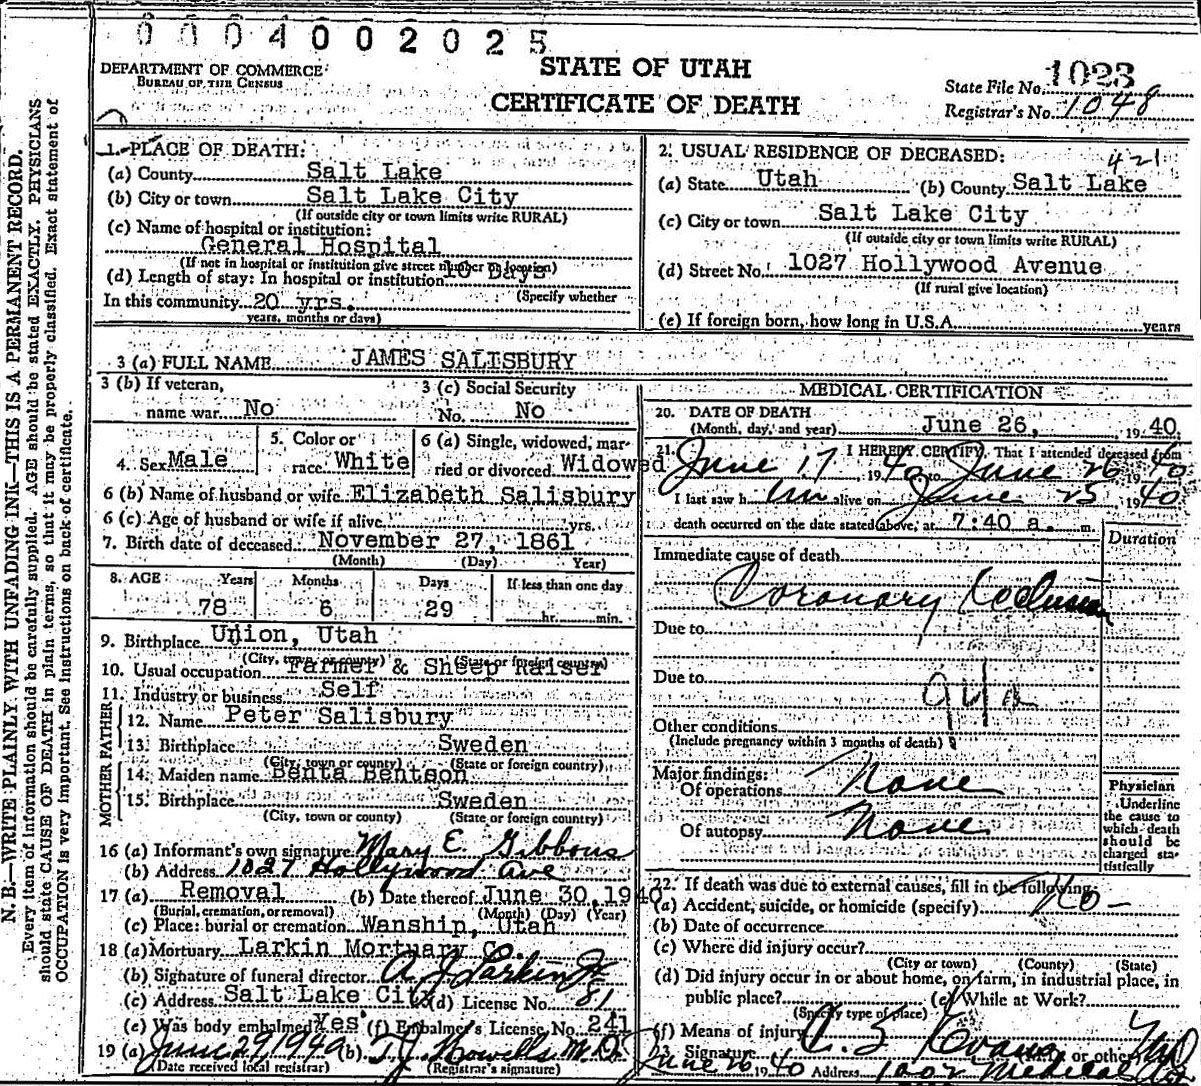 0004002025
DEPARTMENT OF COMMERCE
BUREAU OF THE CENSUS
STATE OF UTAH
CERTIFICATE OF DEATH
State File No. 1023
Registrar's No. 1048
N. B.—WRITE PLAINLY WITH UNFADING INK—THIS IS A PERMANENT RECORD.
Every item of information should be carefully supplied. AGE should be stated EXACTLY. PHYSICIANS
should state CAUSE OF DEATH in plain terms, so that it may be properly classified. Exact statement of
OCCUPATION is very important. See instructions on back of certificate.
1. PLACE OF DEATH:
(a) County Salt Lake
(b) City or town Salt Lake City
(If outside city or town limits write RURAL)
(c) Name of hospital or institution:
General Hospital
(If not in hospital or institution give street number or location)
(d) Length of stay: In hospital or institution 10 Days
(Specify whether
In this community 20 yrs.
years, months or days)
2. USUAL RESIDENCE OF DECEASED: 421
(a) State Utah (b) County Salt Lake
(c) City or town Salt Lake City
(If outside city or town limits write RURAL)
(d) Street No. 1027 Hollywood Avenue
(If rural give location)
(e) If foreign born, how long in U.S.A. years
3 (a) FULL NAME JAMES SALISBURY
3 (b) If veteran,
name war No
3 (c) Social Security
No. No
4. Sex Male
5. Color or
race White
6 (a) Single, widowed, mar-
ried or divorced. Widowed
6 (b) Name of husband or wife Elizabeth Salisbury
6 (c) Age of husband or wife if alive yrs.
7. Birth date of deceased November 27, 1861
(Month) (Day) Year)
8. AGE Years Months Days If less than one day
78 6 29 hr. min.
9. Birthplace Union, Utah
(City, town or county) (State or foreign country)
10. Usual occupation Farmer & Sheep Raiser
11. Industry or business Self
FATHER
12. Name Peter Salisbury
13. Birthplace Sweden
(City, town or county) (State or foreign country)
MOTHER
14. Maiden name Benta Bentson
15. Birthplace Sweden
(City, town or county) (State or foreign country)
16 (a) Informant's own signature Mary E. Gibbons
(b) Address 1027 Hollywood Ave
17 (a) Removal (b) Date thereof June 30, 1940
(Burial, cremation, or removal) (Month) (Day) (Year)
(c) Place: burial or cremation Wanship, Utah
18 (a) Mortuary Larkin Mortuary Co.
(b) Signature of funeral director A. J. Larkin Jr
(c) Address Salt Lake City (d) License No. 81
(e) Was body embalmed? Yes (f) Embalmer's License No. 241
19 (a) June 29, 1940 (b) T. J. Howells M.D.
(Date received local registrar) (Registrar's signature)
MEDICAL CERTIFICATION
20. DATE OF DEATH
(Month, day, and year) June 26, 1940.
21. I HEREBY CERTIFY, That I attended deceased from
June 17 1940 to June 26 1940
I last saw him alive on June 25 1940
death occurred on the date stated above, at 7:40 a. m.
Duration
Immediate cause of death
Coronary Occlusion
Due to
Due to
94a
Other conditions
(Include pregnancy within 3 months of death)
Major findings:
Of operations None
Of autopsy None
Physician
Underline
the cause to
which death
should be
charged sta-
tistically
22. If death was due to external causes, fill in the following:
(a) Accident, suicide, or homicide (specify) No
(b) Date of occurrence
(c) Where did injury occur?
(City or town) (County) (State)
(d) Did injury occur in or about home, on farm, in industrial place, in
public place? (e) While at Work?
(Specify type of place)
(f) Means of injury
23. Signature C. S. Evans or other MD
June 26 1940 Address 1002 Medical